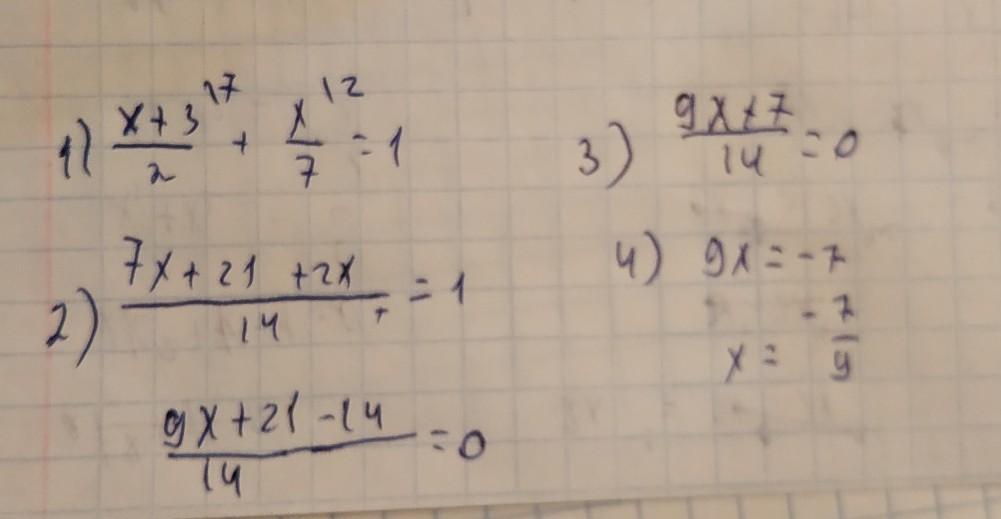 1) (x+3)/2 \7 + x/7 \2 = 1
2) (7x+21 +2x)/14 = 1
(9x+21-14)/14 = 0
3) (9x+7)/14 = 0
4) 9x = -7
x = -7/9